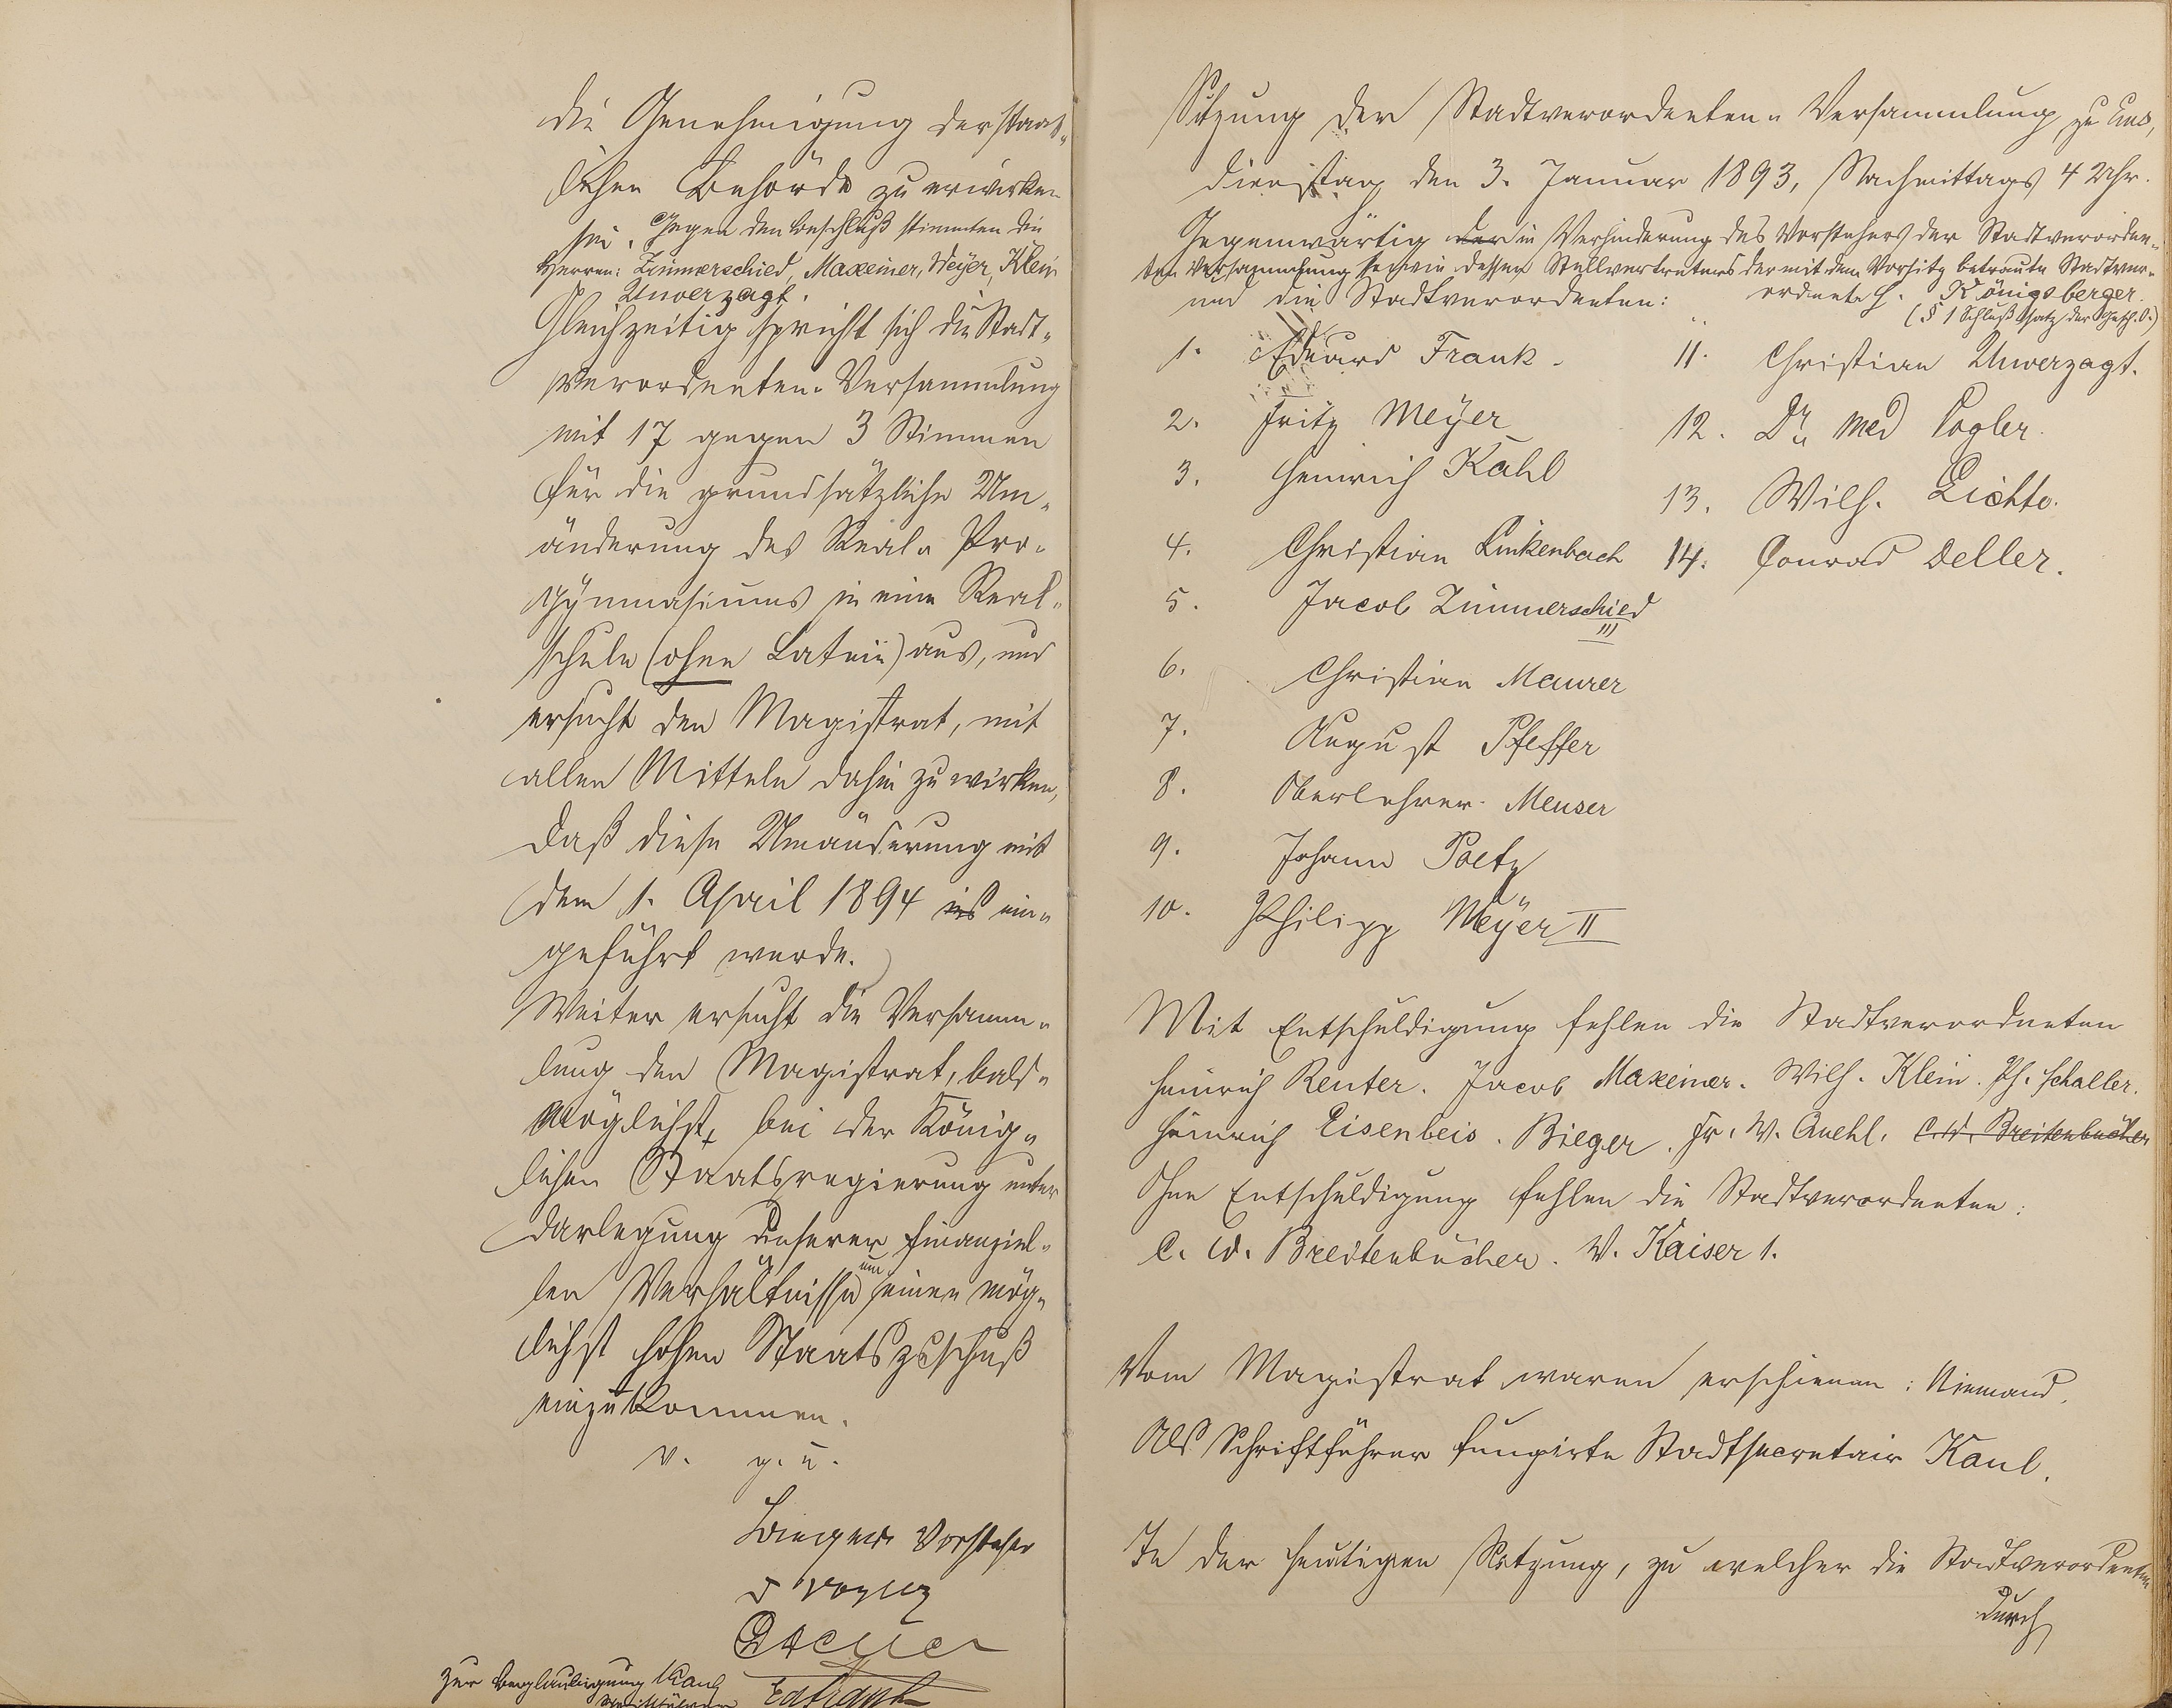 die Genehmigung der staat-
lichen Behörde zu erwirken
sei. Gegen den Beschluß stimmten die
Herren: Zimmerschied, Maxeiner, Meÿer, Klein
Unverzagt.
Gleichzeitig spricht sich die Stadt-
verordneten-Versammlung
mit 17 gegen 3 Stimmen
für die grundsätzliche Um-
änderung des Real-Pro-
gÿmnasiums in eine Real-
schule (ohne Latein) aus, und
ersucht den Magistrat, mit
allen Mitteln dahin zu wirken,
daß diese Umänderung mit
dem 1. April 1894 ein-
geführt werde.
Weiter ersucht die Versamm-
lung den Magistrat, bald-
möglichst, bei der König-
lichen Staatsregierung unter
Darlegung unserer finanziel-
len Verhältnisse um einen mög-
lichst hohen Staatszuschuß
einzukommen.
v. g. u.
Vorsteher
zur Beglaubigung Kaul
Schriftführer Ed Frank
Sitzung der Stadtverordneten-Versammlung zu Ems,
Dienstag den 3. Januar 1893, Nachmittags 4 Uhr.
Gegenwärtig der in Verhinderung des Vorstehers der Stadtverordne-
ten Versammlung sowie dessen Stellvertreters der mit dem Vorsitz betraute Stadtver-
ordnete H. Königsberger
(§ 1 Schlußsatz der Gesch.O.)
und die Stadtverordneten:
1. Eduard Frank.
2. Fritz Meÿer
3. Heinrich Kahl
4. Christian Linkenbach
5. Jacob Zimmerschied III
6. Christian Maurer
7. August Pfeffer
8. Oberlehrer Meuser
9. Johann Poetz
10. Philipp Meÿer II
11. Christian Unverzagt.
12. Dr. med Vogler.
13. Wilh. Lichto.
14. Conrad Deller.
Mit Entschuldigung fehlen die Stadtverordneten
Heinrich Reuter. Jacob Maxeiner. Wilh. Klein. Ph. Schaller.
Heinrich Eisenbeis. Bieger. Fr. W. Quehl. C. W. Breitenbücher
Ohne Entschuldigung fehlen die Stadtverordneten:
C. W. Breitenbücher. W. Kaiser 1.
Vom Magistrat waren erschienen: Niemand.
Als Schriftführer fungirte Stadtsecretair Kaul.
In der heutigen Sitzung, zu welcher die Stadtverordneten
durch